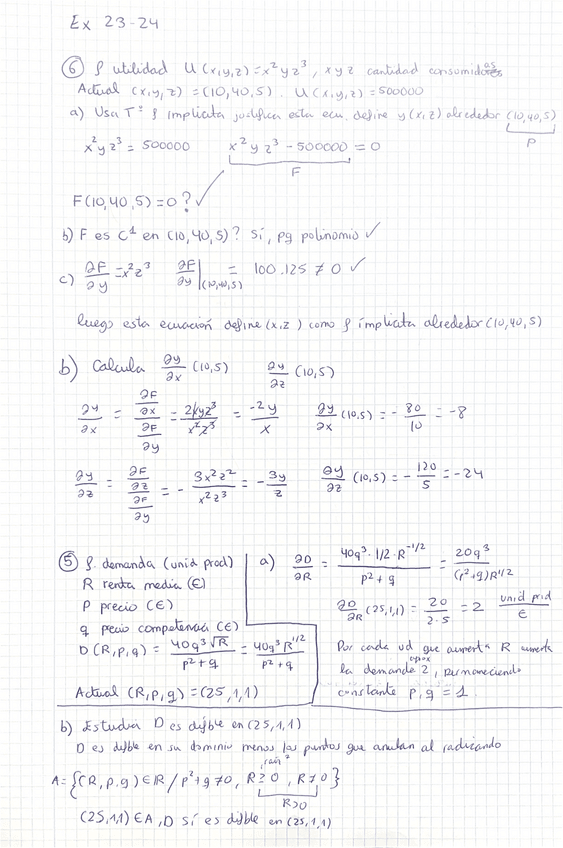 Ex 23-24
⑥ f utilidad U(x,y,z)=x²yz³, xyz cantidad consumidas
Actual (x,y,z)=(10,40,5). U(x,y,z)=500000
a) Usa Tª f implicita justifica esta ecu. define y(x,z) alrededor (10,40,5)
P
x²yz³ = 500000 x²yz³-500000 = 0
F
F(10,40,5)=0? ✓
b) F es C¹ en (10,40,5)? Sí, pq polinomio ✓
c) ∂F/∂y = x²z³ ∂F/∂y|(10,40,5) = 100·125 ≠ 0 ✓
luego esta ecuación define (x,z) como f implicita alrededor (10,40,5)
b) Calcula ∂y/∂x (10,5) ∂y/∂z (10,5)
∂y/∂x = (∂F/∂x)/(∂F/∂y) = 2xyz³/x²z³ = -2y/x ∂y/∂x (10,5) = -80/10 = -8
∂y/∂z = (∂F/∂z)/(∂F/∂y) = -3x²z²/x²z³ = -3y/z ∂y/∂z (10,5) = -120/5 = -24
⑤ f. demanda (unid prod)
R renta media (€)
P precio (€)
q precio competencia (€)
D(R,p,q) = 40q³√R/p²+q = 40q³R^1/2/p²+q
Actual (R,p,q)=(25,1,1)
a) ∂D/∂R = 40q³·1/2·R^-1/2/p²+q = 20q³/(p²+q)R^1/2
∂D/∂R (25,1,1) = 20/2·5 = 2 unid prd/€
Por cada ud que aumenta R aumenta
aprox
la demanda 2, permaneciendo
constante p,q = 1.
b) Estudia D es difble en (25,1,1)
D es difble en su dominio menos los puntos que anulan al radicando
raiz²
A={(R,p,q)∈R / p²+q≠0, R≥0, R≠0}
R>0
(25,1,1)∈A, D sí es difble en (25,1,1)